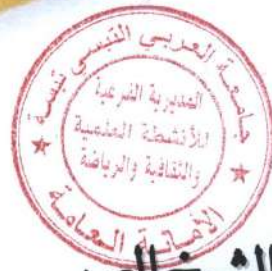 جامعة العربي التبسي تبسة
المديرية الفرعية
للأنشطة العلمية
والثقافية والرياضة
الأمانة العامة